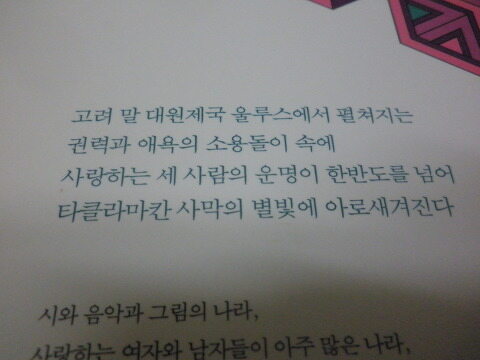 고려 말 대원제국 울루스에서 펼쳐지는
권력과 애욕의 소용돌이 속에
사랑하는 세 사람의 운명이 한반도를 넘어
타클라마칸 사막의 별빛에 아로새겨진다
시와 음악과 그림의 나라,
사랑하는 여자와 남자들이 아주 많은 나라,